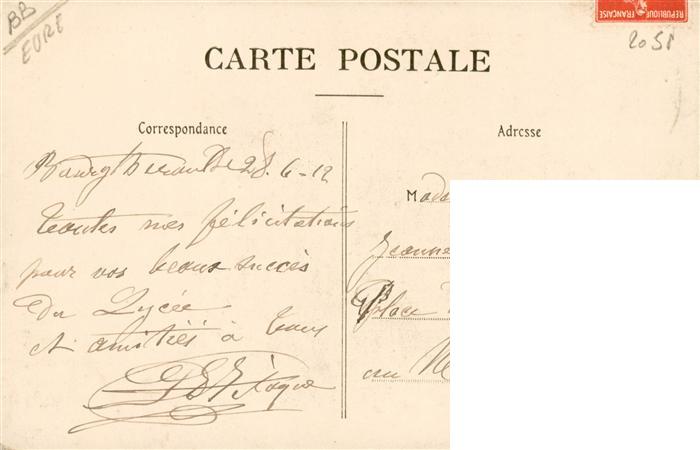 BB
EURE
REPUBLIQUE FRANÇAISE
2051
CARTE POSTALE
Correspondance
Bourgtheroulde 28. 6-12
Toutes mes félicitations
pour vos beaux succès
du Lycée
et amitiés à tous
Adresse
Mada
Jeanne
Place
au